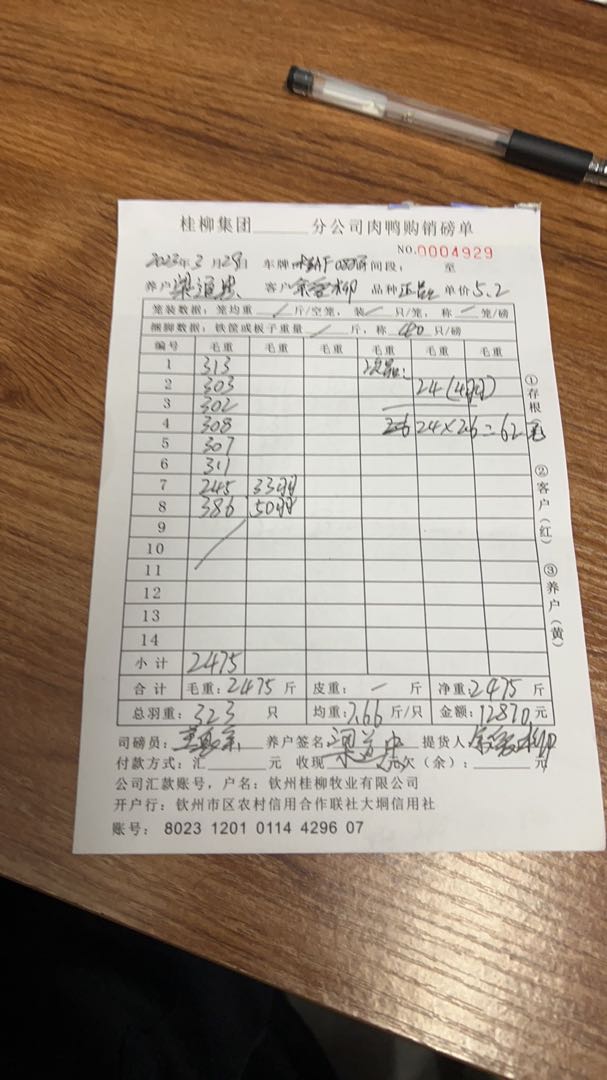 桂柳集团______分公司肉鸭购销磅单
NO.0004929
2023年3月29日 车牌 时间段： 至
养户 客户 柳 品种正品 单价5.2
笼装数据：笼均重 / 斤/空笼，装 / 只/笼，称 / 笼/磅
捆脚数据：铁筐或板子重量 / 斤，称 40 只/磅
编号 毛重 毛重 毛重 毛重 毛重 毛重
1 313 次品：
2 303 24(4羽)
3 302
4 308 2.6 24×2.6=62元
5 307
6 311
7 245 33羽
8 386 50羽
9
10
11
12
13
14
小计 2475
合计 毛重：2475斤 皮重：— 斤 净重：2475斤
总羽重：323 只 均重：7.66斤/只 金额：12870元
司磅员： 养户签名：梁 提货人：
付款方式：汇______元 收现______元欠（余）：______元
公司汇款账号，户名：钦州桂柳牧业有限公司
开户行：钦州市区农村信用合作联社大垌信用社
账号： 8023 1201 0114 4296 07
①存根
②客户（红）
③养户（黄）